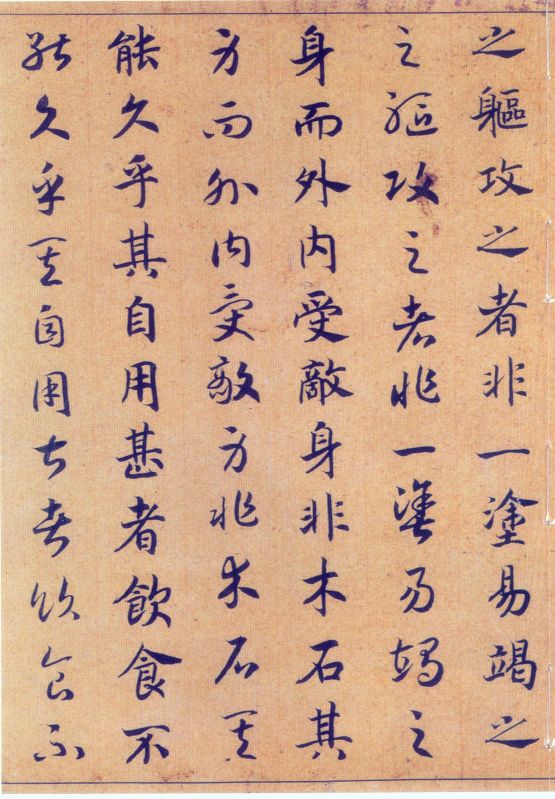 之軀攻之者非一塗易竭之
之軀攻之者非一塗易竭之
身而外内受敵身非木石其
身而外内受敵身非木石其
能久乎其自用甚者飲食不
能久乎其自用甚者飲食不